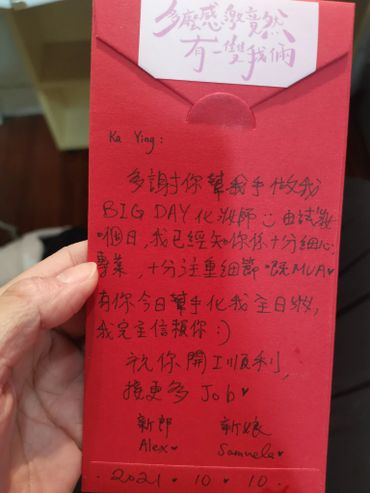 多麼感激竟然
有一雙我倆
Ka Ying:
多謝你幫我手做我
BIG DAY化妝師 :) 由試妝
嗰日,我已經知你係十分細心
專業,十分注重細節嘅MUA♥
有你今日幫手化我全日妝,
我完全信賴你 :)
祝你開工順利,
接更多Job♥
新郎 新娘
Alex♥ Samuela♥
2021 · 10 · 10 ·